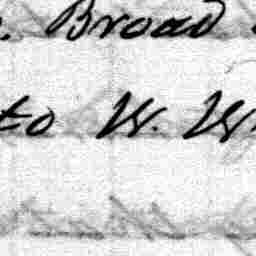 Broad
to W. W